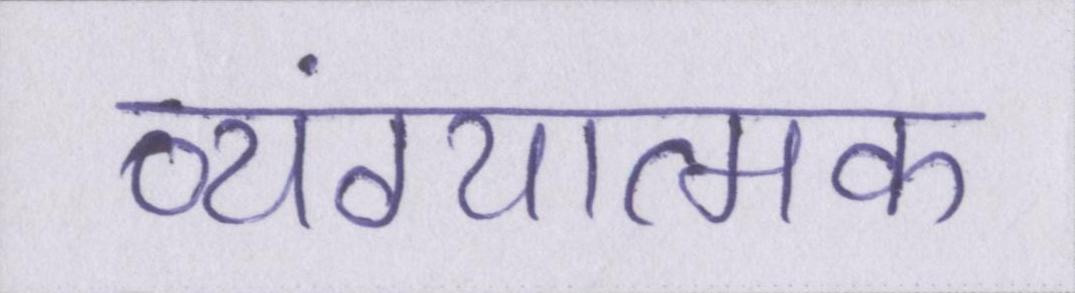 व्यंग्यात्मक